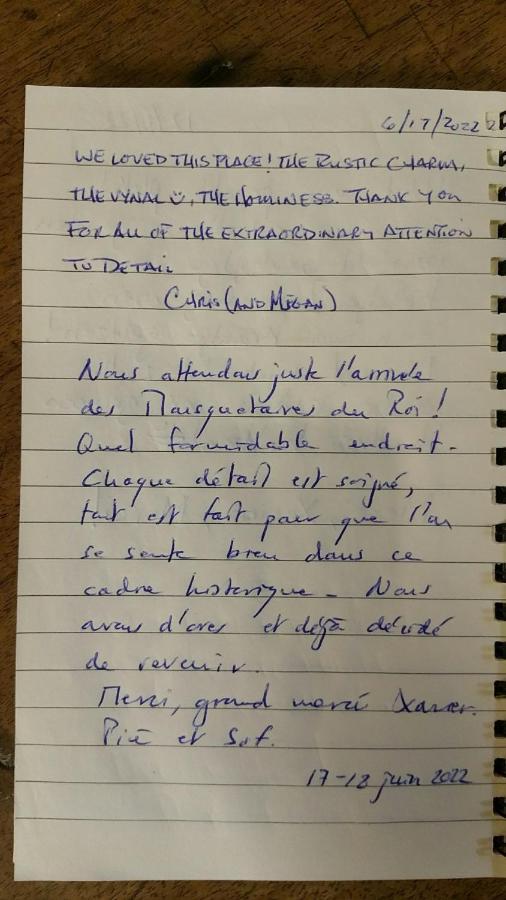 6/17/2022
WE LOVED THIS PLACE! THE RUSTIC CHARM,
THE VYNAL ☺, THE HOMINESS. THANK YOU
FOR ALL OF THE EXTRAORDINARY ATTENTION
TO DETAIL
CHRIS (AND MEGAN)
Nous attendons juste l'arrivée
des Mousquetaires du Roi!
Quel formidable endroit.
Chaque détail est soigné,
tout est fait pour que l'on
se sente bien dans ce
cadre historique. Nous
avons d'ores et déjà décidé
de revenir.
Merci, grand merci Xavier.
et Sof.
17-18 juin 2022